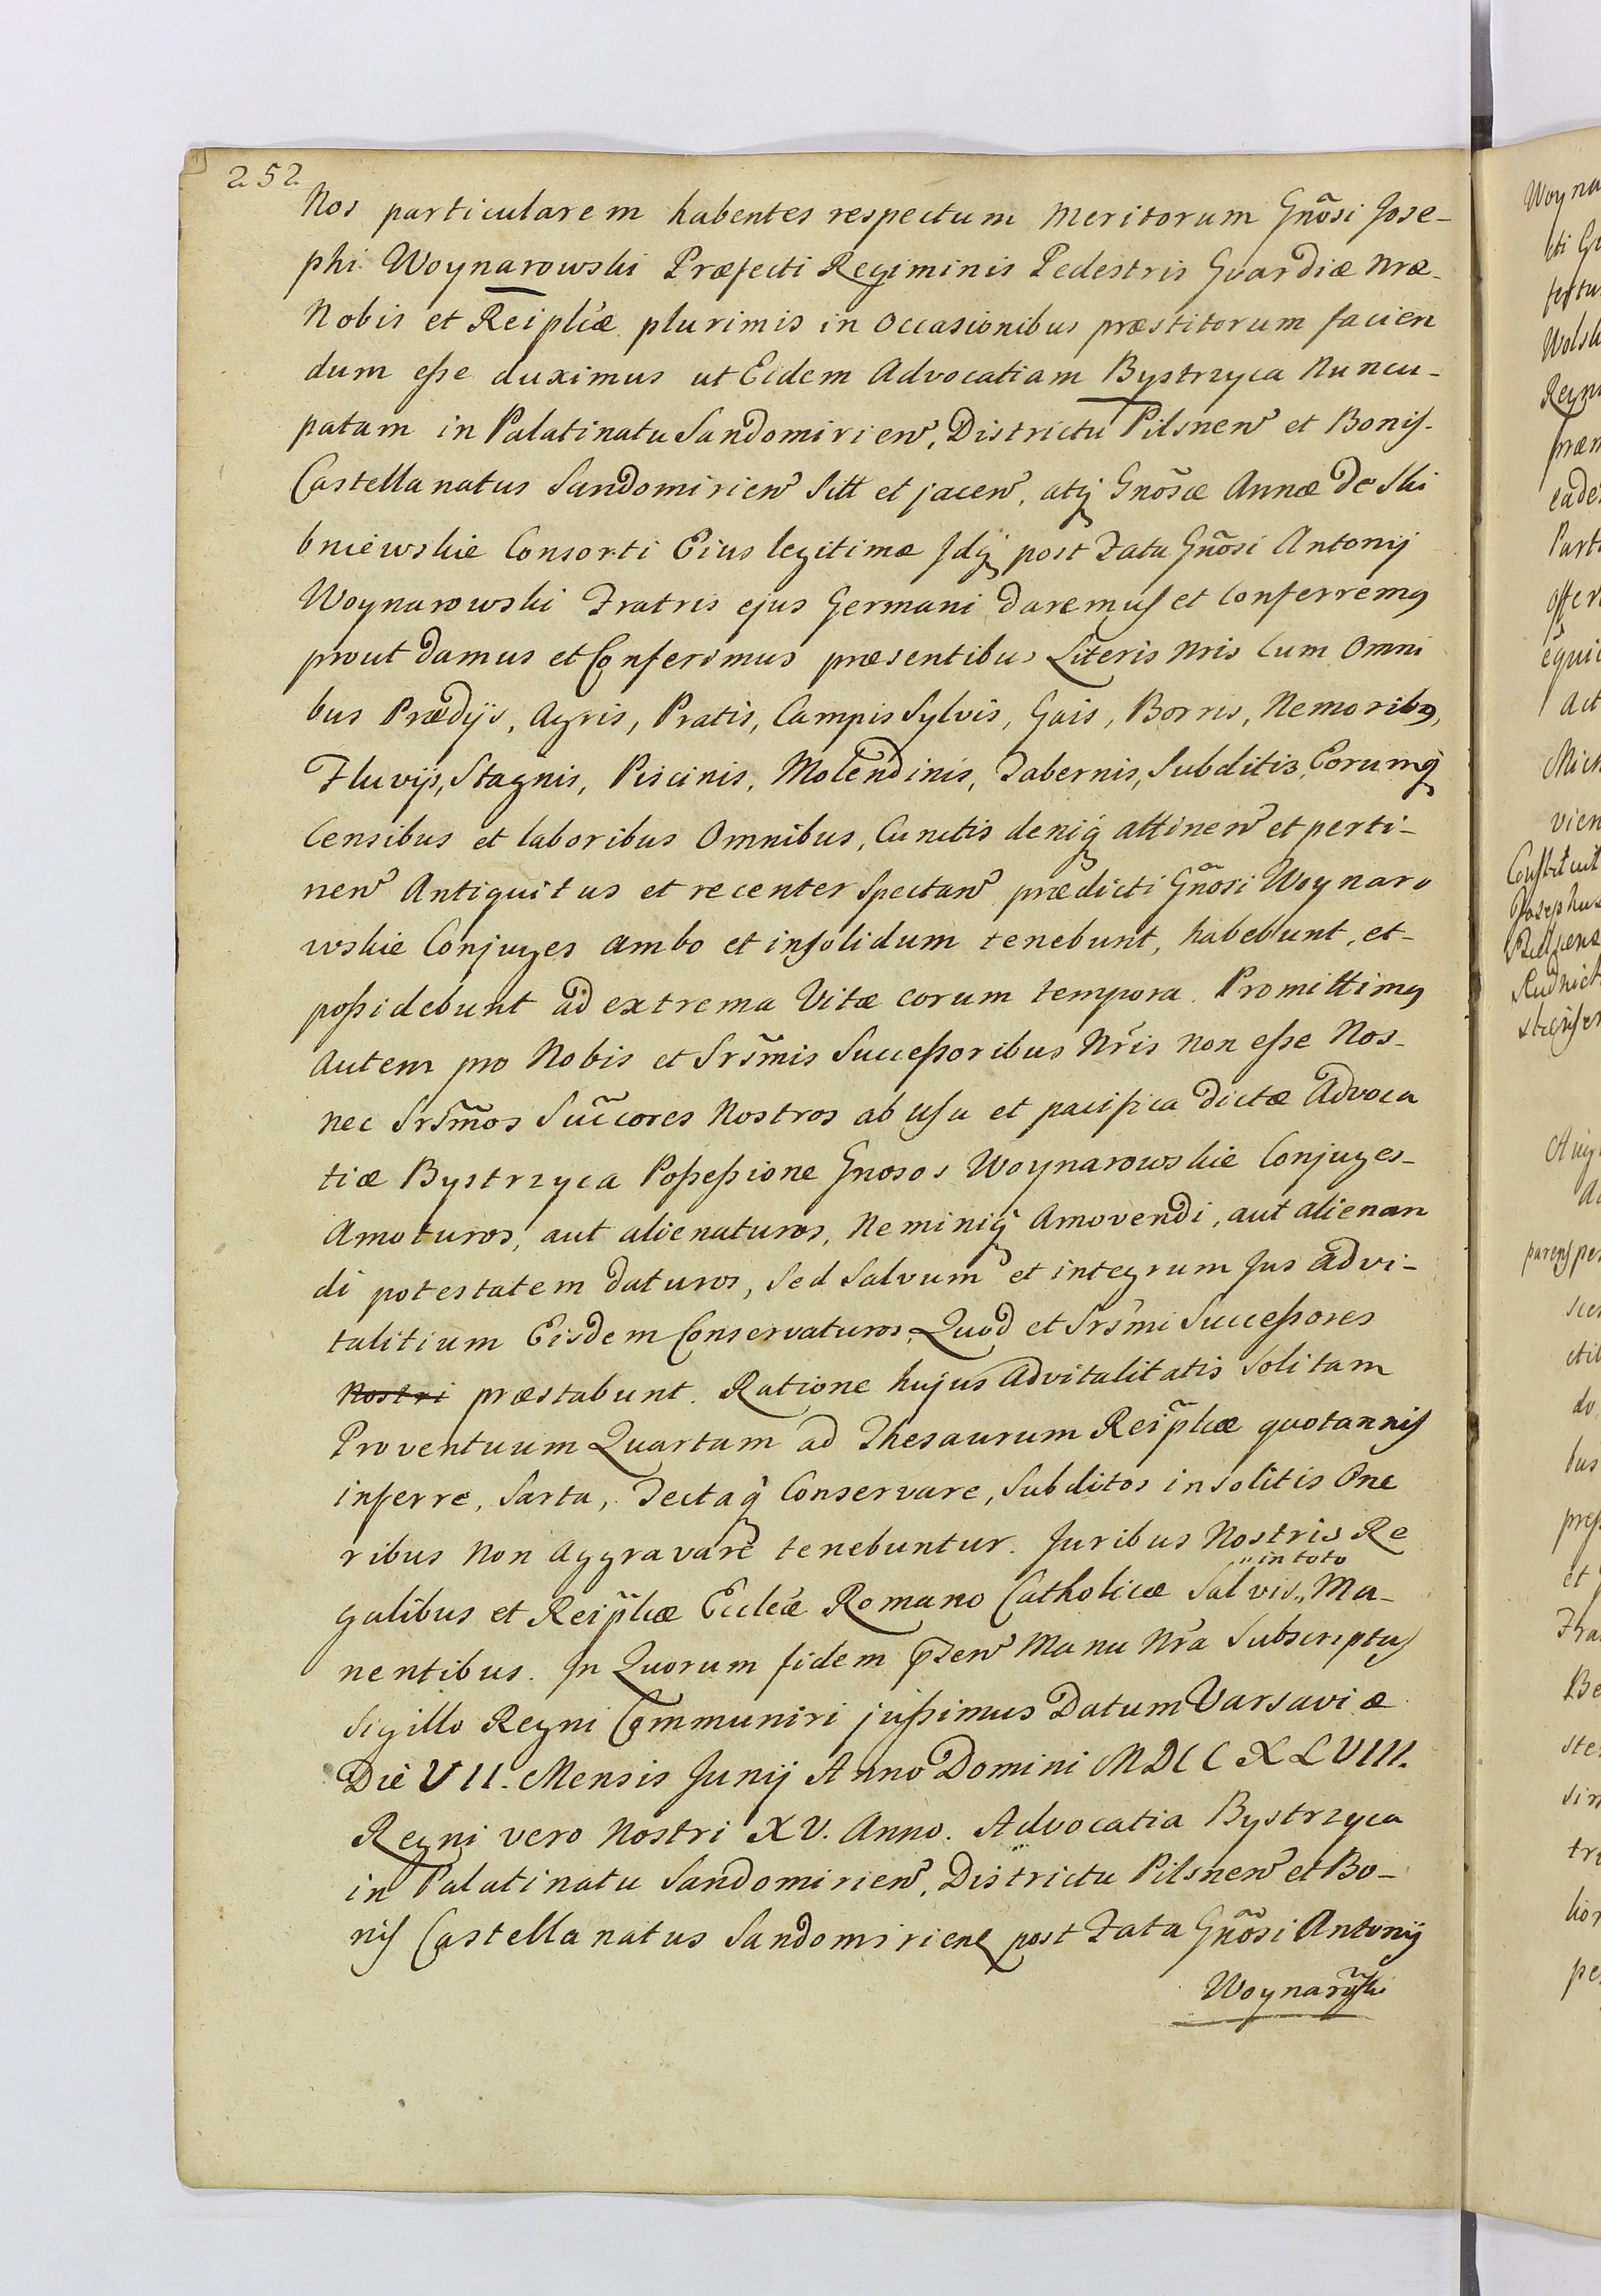 252
Nos particularem habentes respectum Meritorum Gnõsi Jose-
phi Woynarowski Præfecti Regiminis Pedestris Gvardiæ nræ
Nobis et Reiplicæ plurimis in Occasionibus præstitorum facien
dum eße duximus ut Eidem Advocatiam Bystrzyca Nuncu-
patam in Palatinatu Sandomirien, Districtu Pilsnen et Bonis
Castellanatus Sandomirien Sitt et jacen, atq Gnõsæ Annæ De Ski
bniewskie Consorti Eius legitimæ Jdq post Fata Gnõsi Antonij
Woynarowski Fratris ejus Germani daremus et Conferremq
prout damus et Conferimus præsentibus Literis Nris Cum Omni
bus Prædijs, Agris, Pratis, Campis Sylvis, Gais, Borris, Nemoribq,
Fluvijs, Stagnis, Piscinis, Molendinis, Tabernis, Subditis, Eorumq
Censibus et laboribus Omnibus, Cunctis deniq attinen et perti-
nen Antiquitus et recenter Spectan prædicti Gnõsi Woynaro
wskie Conjuges ambo et insolidum tenebunt, habebunt, et
poßidebunt ad extrema Vitæ eorum tempora. Promittimq
autem pro Nobis et Srs̃mis Succeßoribus Nris non eße Nos
nec Srs̃mos Succ̃ores Nostros ab Usu et pacifica dictæ Advoca
tiæ Bystrzyca Poßeßione Gnosos Woynarowskie Conjuges
Amoturos, aut alienaturos, Neminiq Amovendi, aut alienan
di potestatem daturos, Sed Salvum et integrum Jus advi-
talitium Eisdem Conservaturos, Quod et Srs̃mi Succeßores
Nostri præstabunt. Ratione hujus Advitalitatis Solitam
Proventuum Quartam ad Thesaurum Reip̃licæ quotannis
inferre, Sarta, Tectaq Conservare, Subditos insolitis One
ribus Non Aggravare tenebuntur. Juribus Nostris Re
galibus et Reip̃licæ Eccleæ Romano Catholicæ Salvis,, Ma-
,, in toto
nentibus. In Quorum fidem pzen Manu Nra Subscriptus
Sigillo Regni Communiri jußimus Datum Varsaviæ
Die VII. Mensis Junij Anno Domini MDCCXLVIII.
Regni vero Nostri XV. Anno. Advocatia Bystrzyca
in Palatinatu Sandomirien, Districtu Pilsnen et Bo-
nis Castellanatus Sandomirien post Fata Gnõsi Antonij
Woynarõski